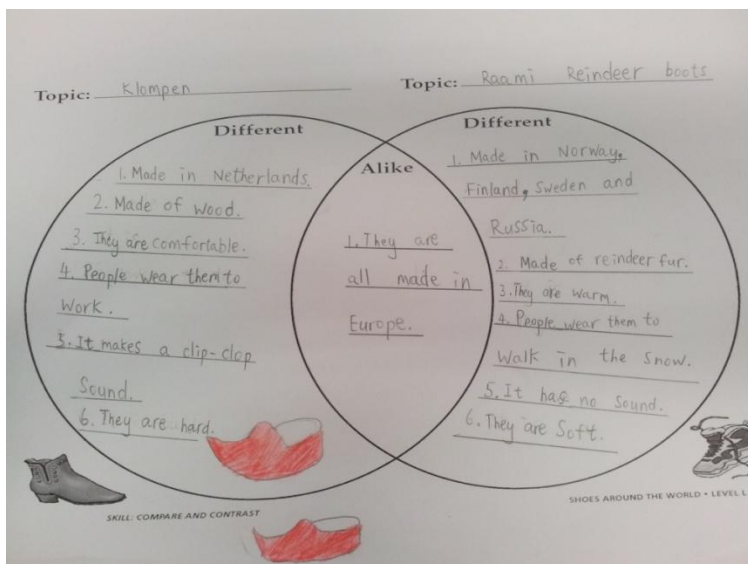 Topic: Klompen
Topic: Raami Reindeer boots
Different
1. Made in Netherlands.
2. Made of wood.
3. They are comfortable.
4. People wear them to
work.
5. It makes a clip-clop
Sound.
6. They are hard.
Alike
1. They are
all made in
Europe.
Different
1. Made in Norway,
Finland, Sweden and
Russia.
2. Made of reindeer fur.
3. They are warm.
4. People wear them to
walk in the snow.
5. It has no sound.
6. They are Soft.
SKILL: COMPARE AND CONTRAST
SHOES AROUND THE WORLD • LEVEL L